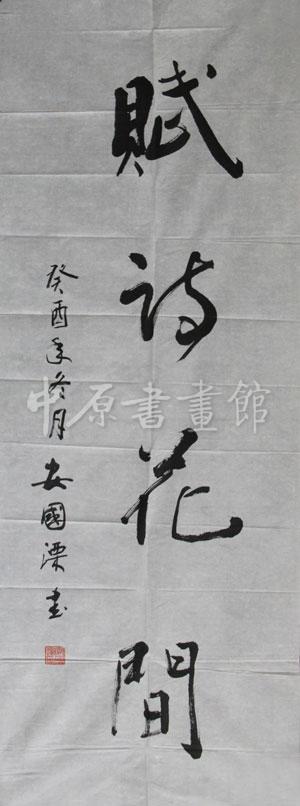 賦詩花間
癸酉年冬月安國漂书
中原書畫館